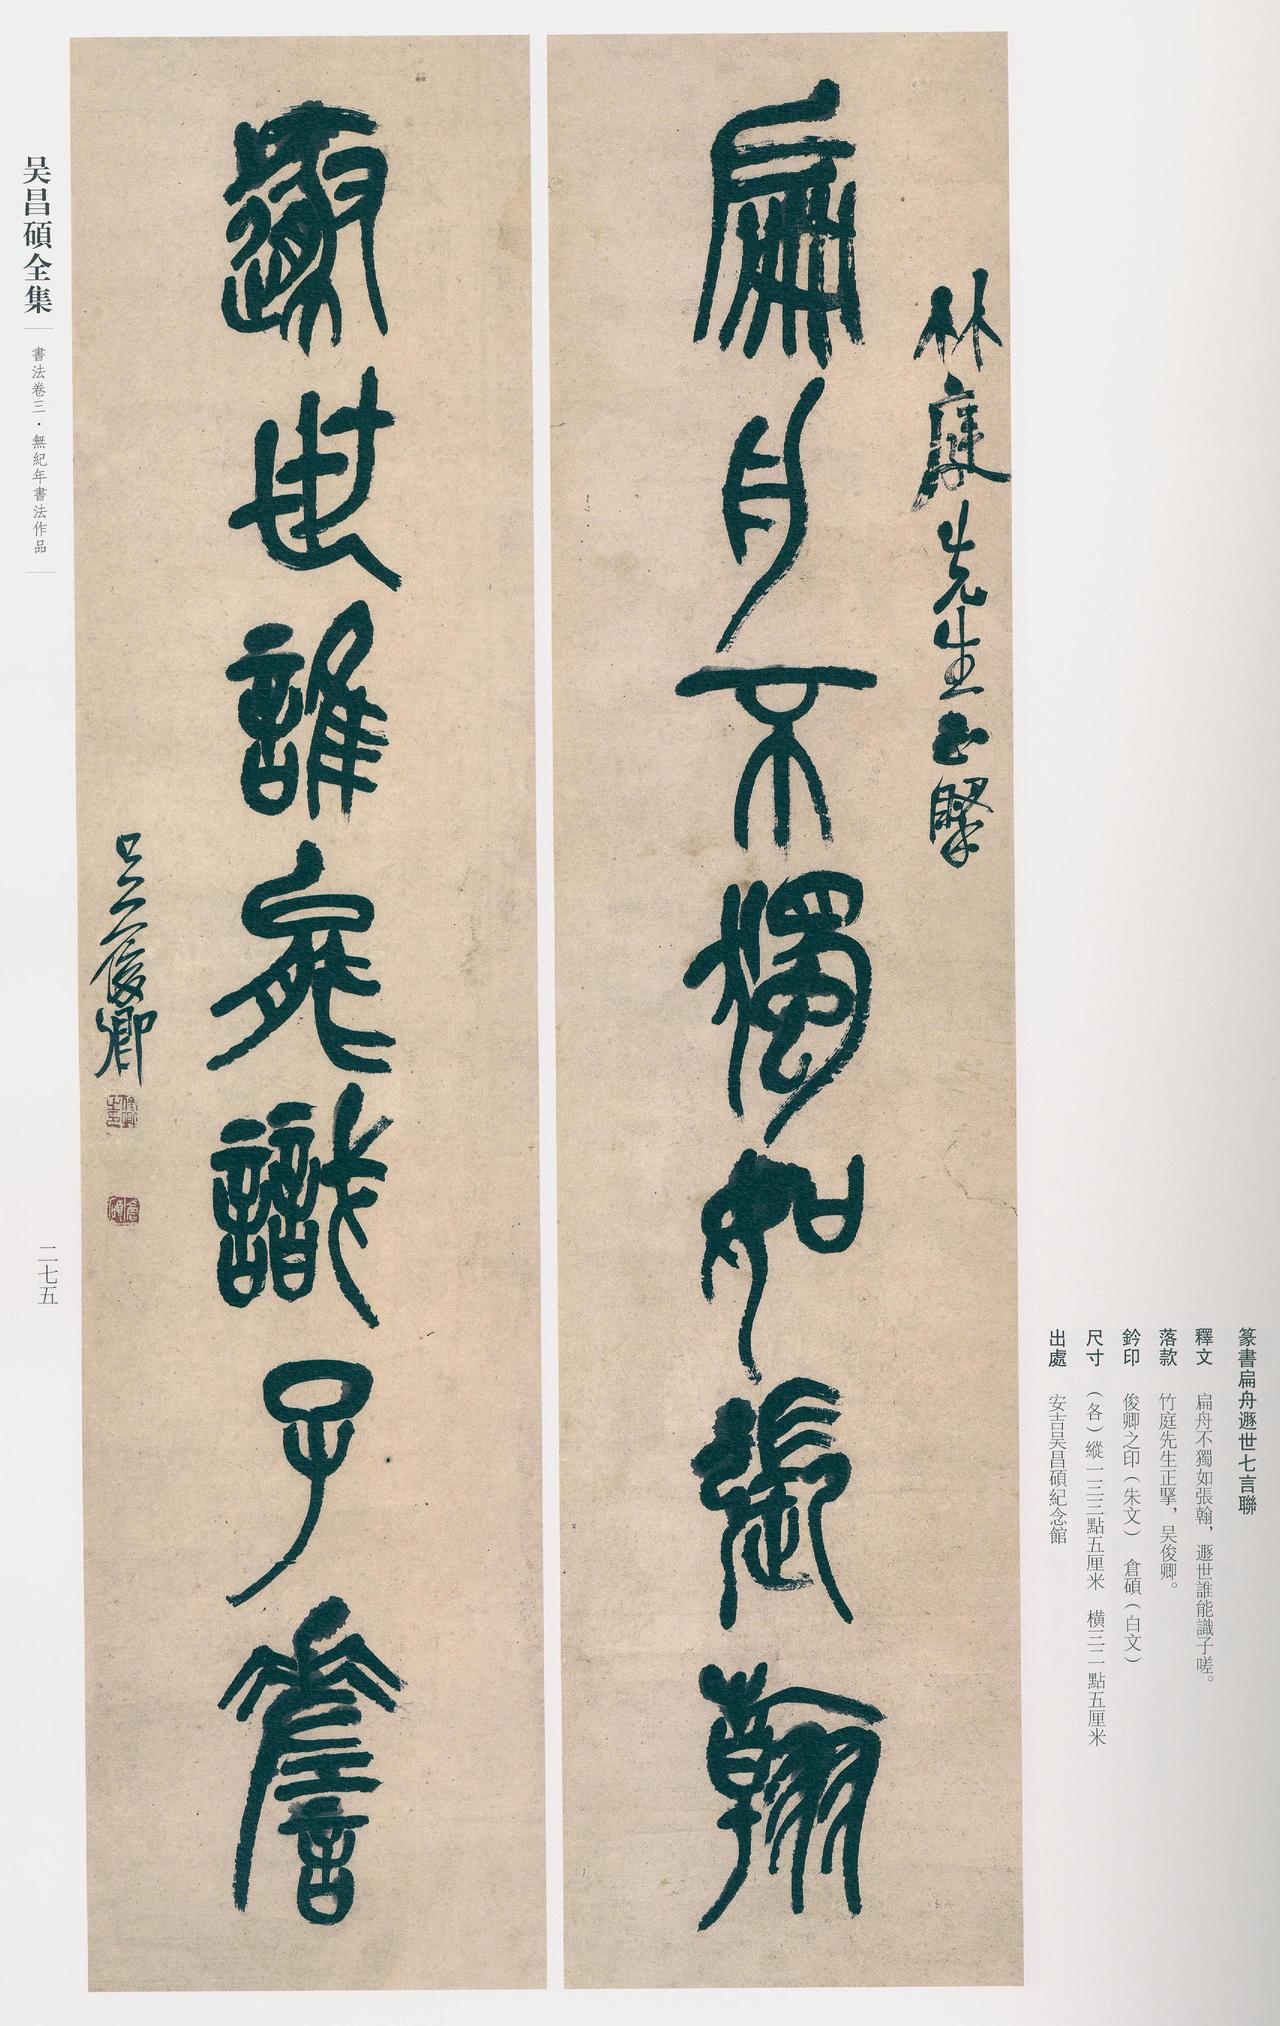 篆書扁舟遯世七言聯
釋文 扁舟不獨如張翰，遯世誰能識子嗟。
落款 竹庭先生正掔，吴俊卿。
鈐印 俊卿之印（朱文） 倉碩（白文）
尺寸 （各）縱一三三點五厘米 橫三二點五厘米
出處 安吉吴昌碩紀念館
竹庭先生正掔
扁舟不獨如張翰
遯世誰能識子嗟
吴俊卿
俊卿之印
倉碩
吴昌碩全集
書法卷三·無紀年書法作品
二七五